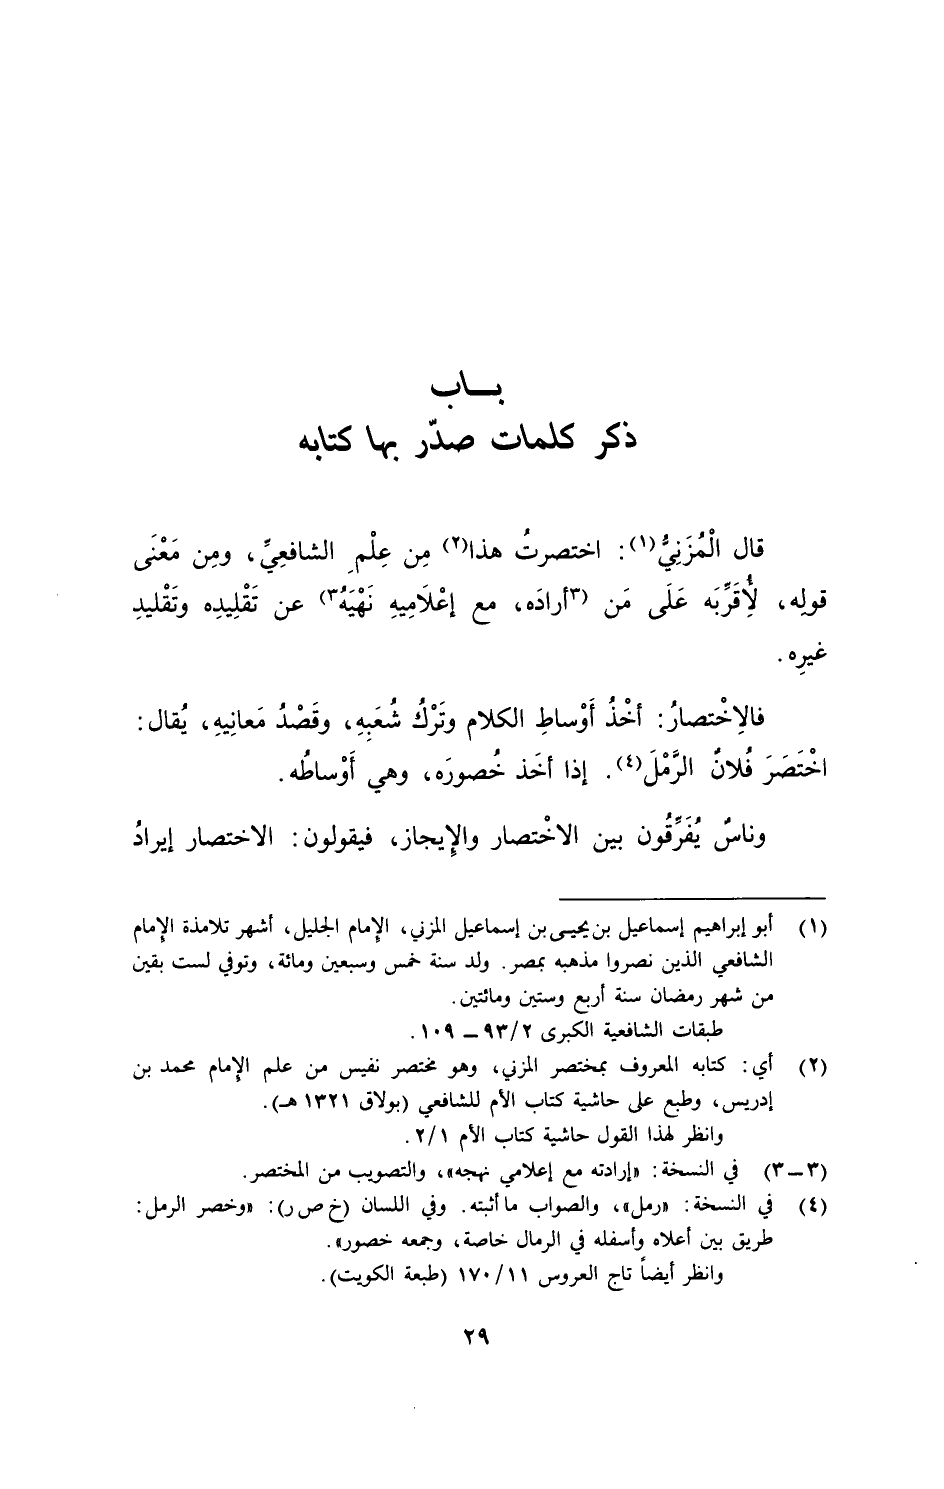 بـــاب
ذكر كلمات صدّر بها كتابه
قال الْمُزَنِيُّ(١): اختصرتُ هذا(٢) مِن عِلْمِ الشافعِيِّ، ومِن مَعْنَى
قولِه، لِأُقَرِّبَه عَلَى مَن (٣أرادَه، مع إعْلَامِيهِ نَهْيَهُ٣) عن تَقْلِيدِه وتَقْليدِ
غيرِه.
فالاِخْتصارُ: أخْذُ أَوْساطِ الكلام وتَرْكُ شُعَبِهِ، وقَصْدُ مَعانِيهِ، يُقال:
اخْتَصَرَ فُلانٌ الرَّمْلَ(٤). إذا أخَذ خُصورَه، وهي أَوْساطُه.
وناسٌ يُفَرِّقُون بين الاخْتصار والإيجاز، فيقولون: الاختصار إيرادُ
(١) أبو إبراهيم إسماعيل بن يحيـى بن إسماعيل المزني، الإمام الجليل، أشهر تلامذة الإمام
الشافعي الذين نصروا مذهبه بمصر. ولد سنة خمس وسبعين ومائة، وتوفي لست بقين
من شهر رمضان سنة أربع وستين ومائتين.
طبقات الشافعية الكبرى ٩٣/٢ ــ ١٠٩.
(٢) أي: كتابه المعروف بمختصر المزني، وهو مختصر نفيس من علم الإمام محمد بن
إدريس، وطبع على حاشية كتاب الأم للشافعي (بولاق ١٣٢١ هـ).
وانظر لهذا القول حاشية كتاب الأم ٢/١.
(٣ــ٣) في النسخة: «إرادته مع إعلامي نهجه»، والتصويب من المختصر.
(٤) في النسخة: «رمل»، والصواب ما أثبته. وفي اللسان (خ ص ر): «وخصر الرمل:
طريق بين أعلاه وأسفله في الرمال خاصة، وجمعه خصور».
وانظر أيضاً تاج العروس ١٧٠/١١ (طبعة الكويت).
٢٩